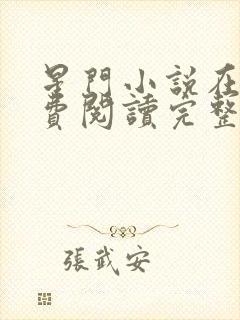 星門小說在
費閱讀完整
張武安